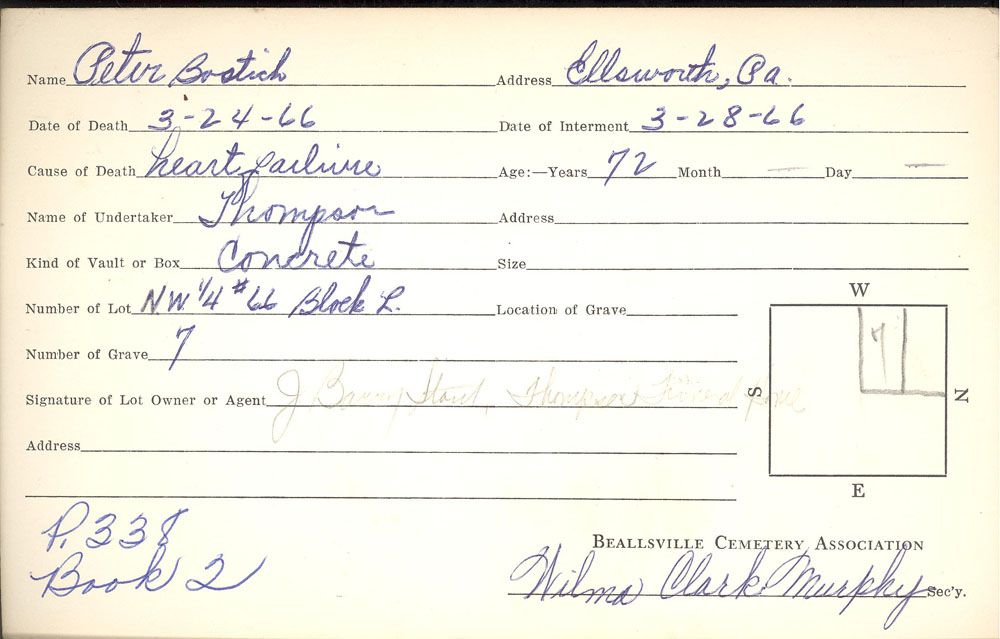 Name Peter Bostich Address Ellsworth, Pa.
Date of Death 3-24-66 Date of Interment 3-28-66
Cause of Death heart failure Age:—Years 72 Month — Day —
Name of Undertaker Thompson Address
Kind of Vault or Box Concrete Size
Number of Lot N.W. 1/4 #66 Block L. Location of Grave
W
Number of Grave 7
7
S
N
Signature of Lot Owner or Agent J Barry Stout, Thompson Funeral Home
Address
E
P. 338
Book 2
BEALLSVILLE CEMETERY ASSOCIATION
Wilma Clark Murphy Sec'y.